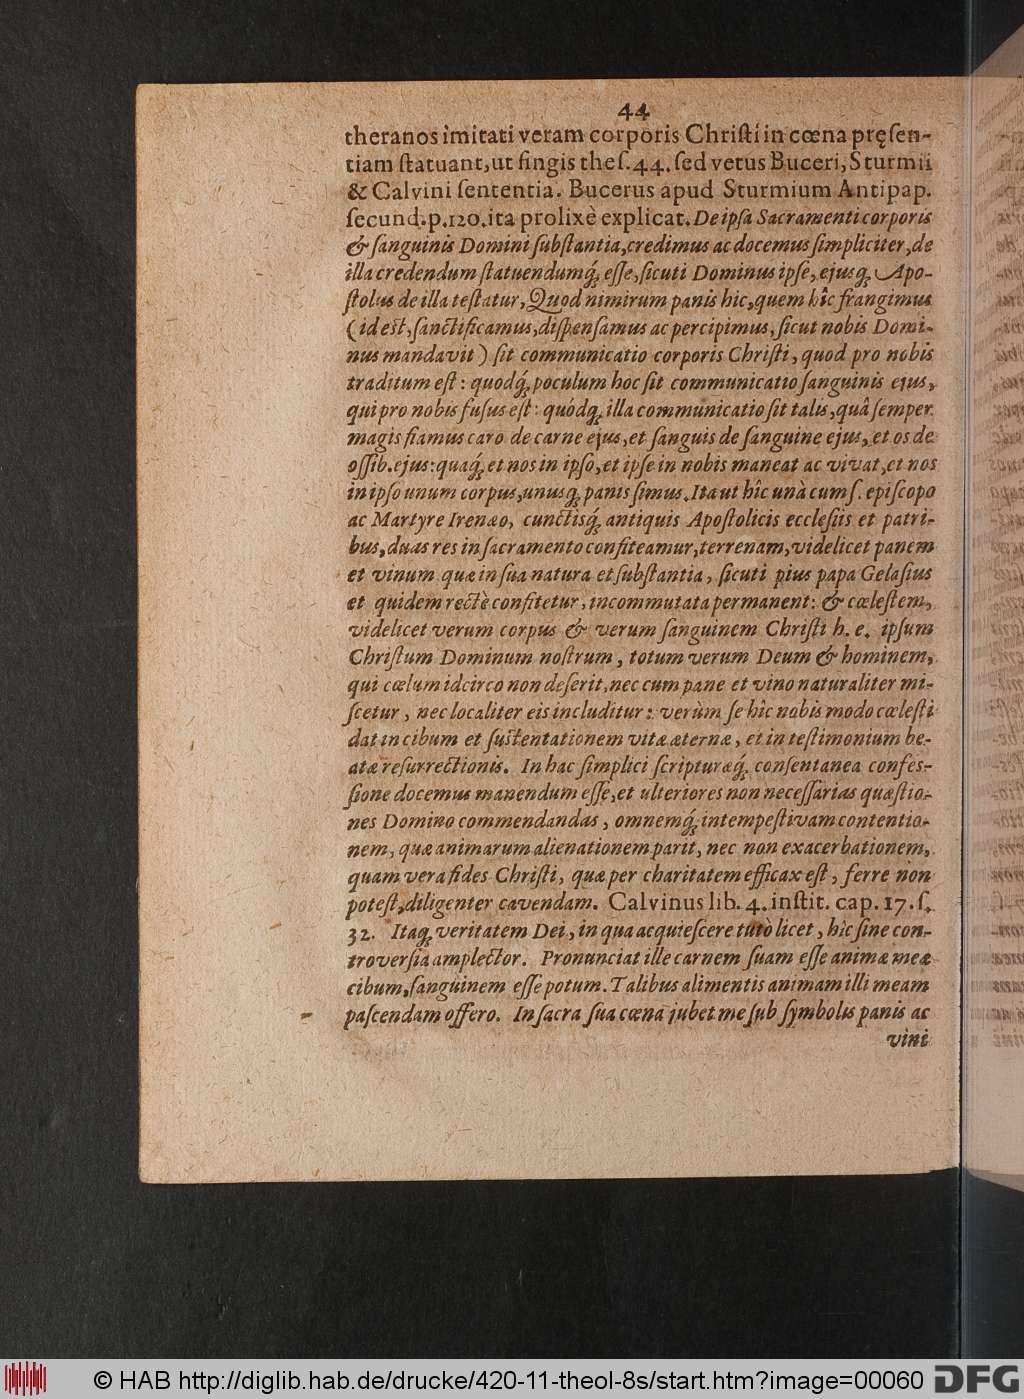 44
theranos imitati veram corporis Chriſti in cœna pręſen-
tiam ſtatuant, ut fingis theſ. 44. ſed vetus Buceri, Sturmii
& Calvini ſententia. Bucerus apud Sturmium Antipap.
ſecund. p. 120. ita prolixè explicat. De ipſa Sacramenti corporis
& ſanguinis Domini ſubſtantia, credimus ac docemus ſimpliciter, de
illa credendum ſtatuendumq́; eſſe, ſicuti Dominus ipſe, ejusq; Apo-
ſtolus de illa teſtatur, Quod nimirum panis hic, quem hîc frangimus
(id eſt, ſanctificamus, diſpenſamus ac percipimus, ſicut nobis Domi-
nus mandavit) ſit communicatio corporis Chriſti, quod pro nobis
traditum eſt: quodq́; poculum hoc ſit communicatio ſanguinis ejus,
qui pro nobis fuſus eſt: quódq; illa communicatio ſit talis, quâ ſemper
magis fiamus caro de carne ejus, et ſanguis de ſanguine ejus, et os de
oſſib. ejus: quaq́; et nos in ipſo, et ipſe in nobis maneat ac vivat, et nos
in ipſo unum corpus, unusq; panis ſimus. Ita ut hîc unà cum ſ. epiſcopo
ac Martyre Irenæo, cunctisq́; antiquis Apoſtolicis eccleſiis et patri-
bus, duas res in ſacramento confiteamur, terrenam, videlicet panem
et vinum quæ in ſua natura et ſubſtantia, ſicuti pius papa Gelaſius
et quidem rectè confitetur, incommutata permanent: & cœleſtem,
videlicet verum corpus & verum ſanguinem Chriſti h. e. ipſum
Chriſtum Dominum noſtrum, totum verum Deum & hominem,
qui cœlum idcirco non deſerit, nec cum pane et vino naturaliter mi-
ſcetur, nec localiter eis includitur: verùm ſe hîc nobis modo cœleſti
dat in cibum et ſuſtentationem vitæ æternæ, et in teſtimonium be-
atæ reſurrectionis. In hac ſimplici ſcripturæq́; conſentanea confeſ-
ſione docemus manendum eſſe, et ulteriores non neceſſarias quæſtio-
nes Domino commendandas, omnemq́; intempeſtivam contentio-
nem, quæ animarum alienationem parit, nec non exacerbationem,
quam vera fides Chriſti, quæ per charitatem efficax eſt, ferre non
poteſt, diligenter cavendam. Calvinus lib. 4. inſtit. cap. 17. ſ.
32. Itaq; veritatem Dei, in qua acquieſcere tutò licet, hîc ſine con-
troverſia amplector. Pronunciat ille carnem ſuam eſſe animæ meæ
cibum, ſanguinem eſſe potum. Talibus alimentis animam illi meam
paſcendam offero. In ſacra ſua cœna jubet me ſub ſymbolis panis ac
vini
© HAB http://diglib.hab.de/drucke/420-11-theol-8s/start.htm?image=00060
DFG